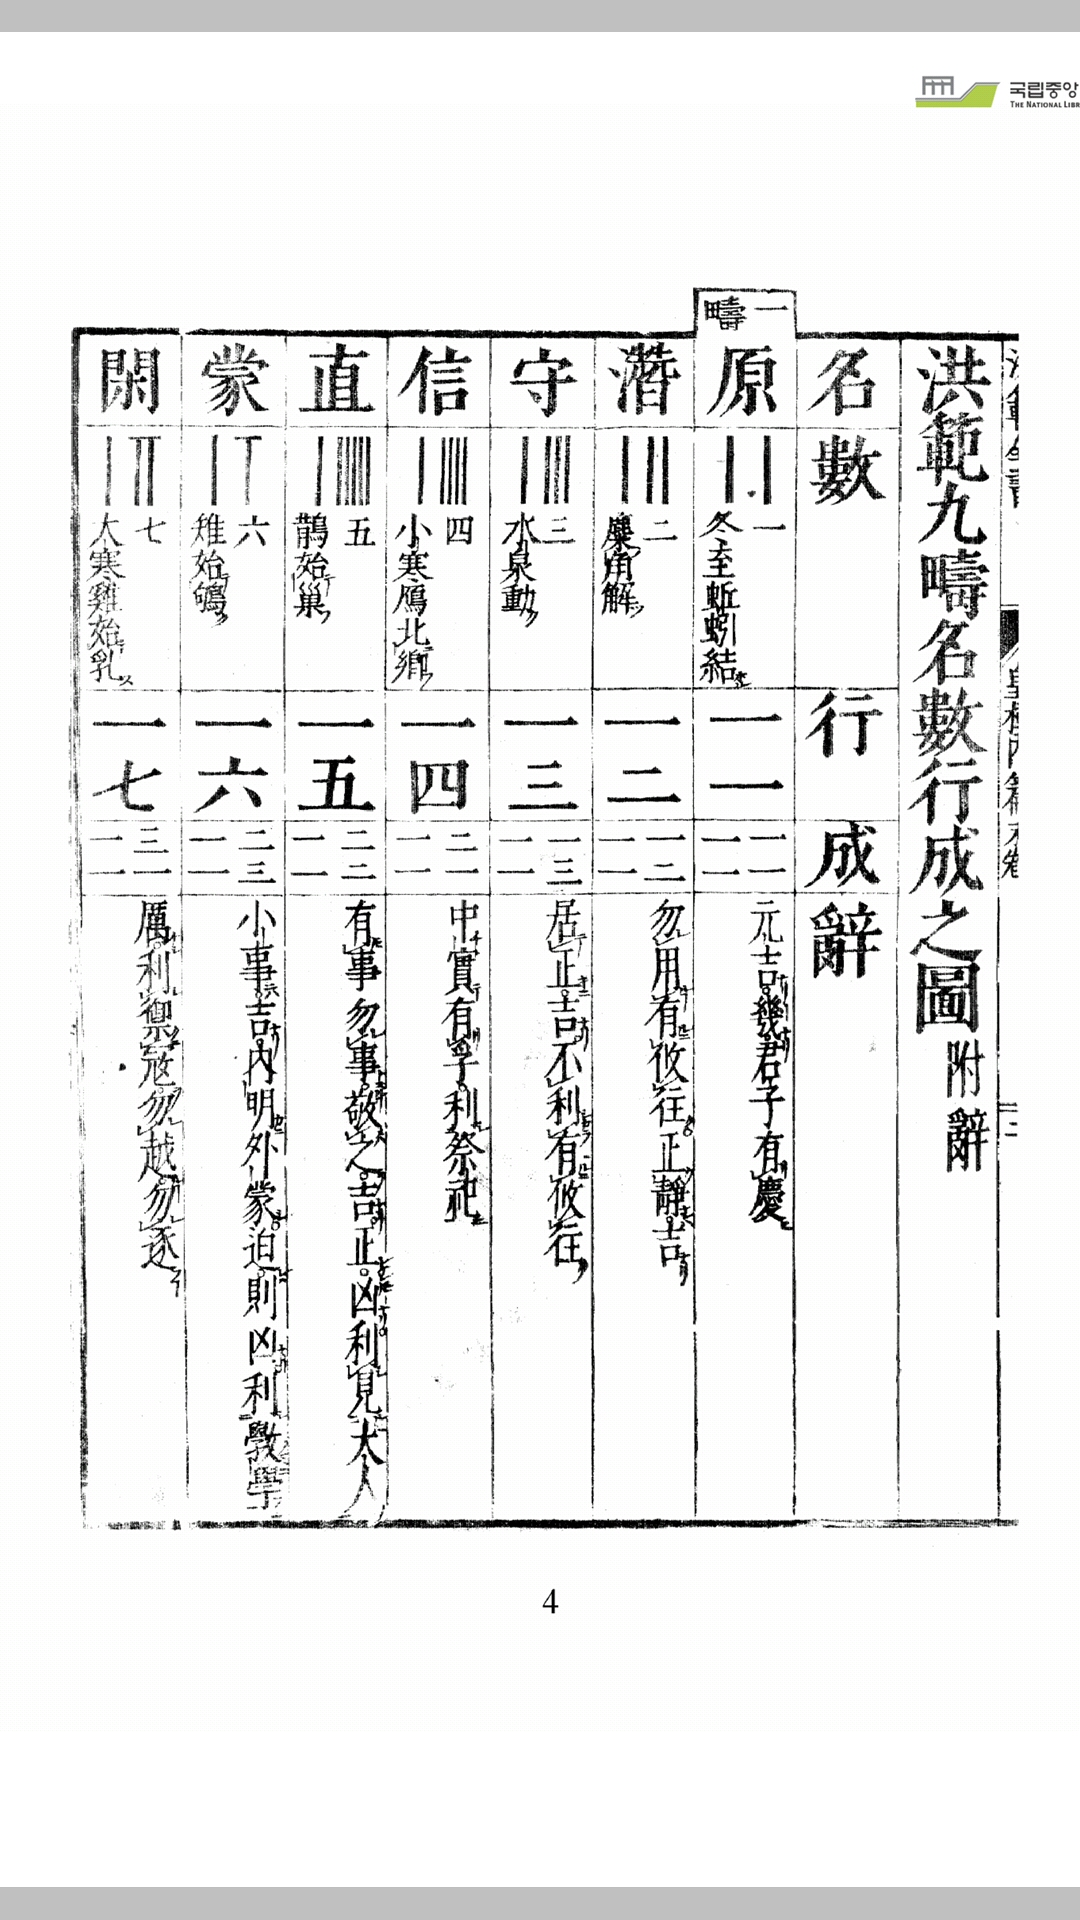 국립중앙
THE NATIONAL LIBR
洪範九疇名數行成之圖附辭
名數行成辭
一疇
原
一
冬至蚯蚓結
一一
一一
一一
元吉幾君子有慶
潛
二
麋角解
一二
一二
一一
勿用有攸往正靜吉
守
三
水泉動
一三
一三
一一
居正吉不利有攸往
信
四
小寒鴈北鄉
一四
二一
一一
中實有孚利祭祀
直
五
鵲始巢
一五
二二
一一
有事勿事敬之吉正凶利見大人
蒙
六
雉始鴝
一六
二三
一一
小事吉內明外蒙迫則凶利教學
閑
七
大寒雞始乳
一七
三一
一一
厲利禦寇勿越勿逐
4